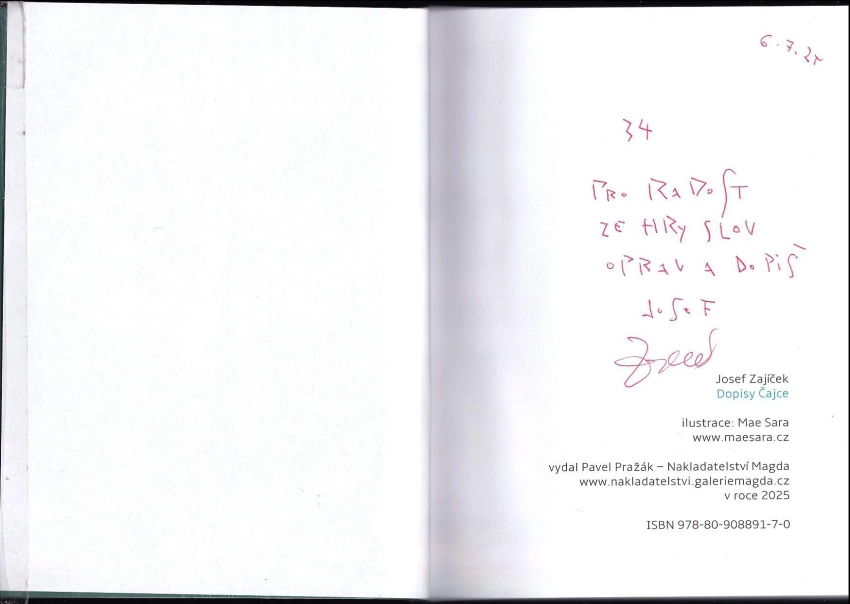 6.7.25
34
PRO RADOST
ZE HRY SLOV
OPRAV A DOPIŠ
JOSEF
Josef Zajíček
Dopisy Čajce
ilustrace: Mae Sara
www.maesara.cz
vydal Pavel Pražák – Nakladatelství Magda
www.nakladatelstvi.galeriemagda.cz
v roce 2025
ISBN 978-80-908891-7-0